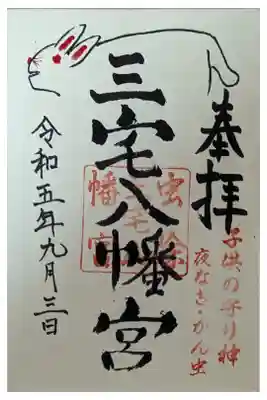 奉拝
子供の守り神
夜なき・かん虫
三宅八幡宮
虫除
三宅
八幡宮
令和五年九月三日